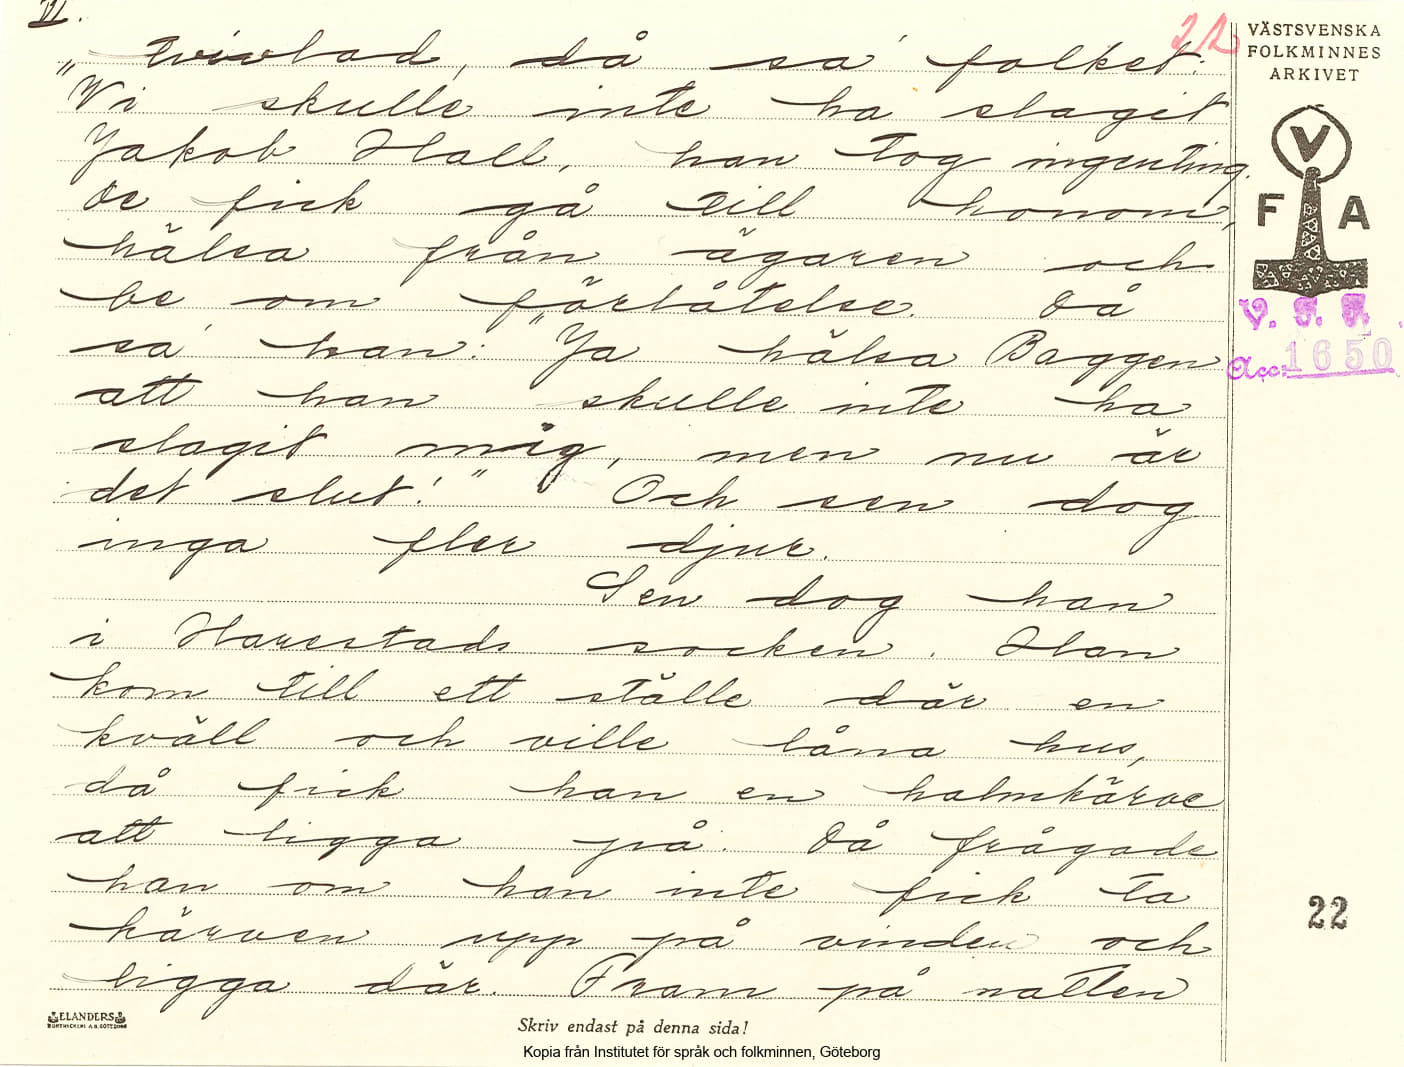 VI.
22
tvivlad, då sa' folket:
"Vi skulle inte ha slagit
Jakob Hall, han tog ingenting.
De fick gå till honom,
hälsa från ägaren och
be om förlåtelse. Då
sa' han: "Ja hälsa Baggen
att han skulle inte ha
slagit mig, men nu är
det slut!" Och sen dog
inga fler djur.
Sen dog han
i Harestads socken. Han
kom till ett ställe där en
kväll och ville låna hus,
då fick han en halmkärve
att ligga på. Då frågade
han om han inte fick ta
kärven upp på vinden och
ligga där. Fram på natten
VÄSTSVENSKA
FOLKMINNES
ARKIVET
V
F A
V. F. F.
Acc: 1650
22
ELANDERS
BOKTRYCKERI A.B. GÖTEBORG
Skriv endast på denna sida!
Kopia från Institutet för språk och folkminnen, Göteborg